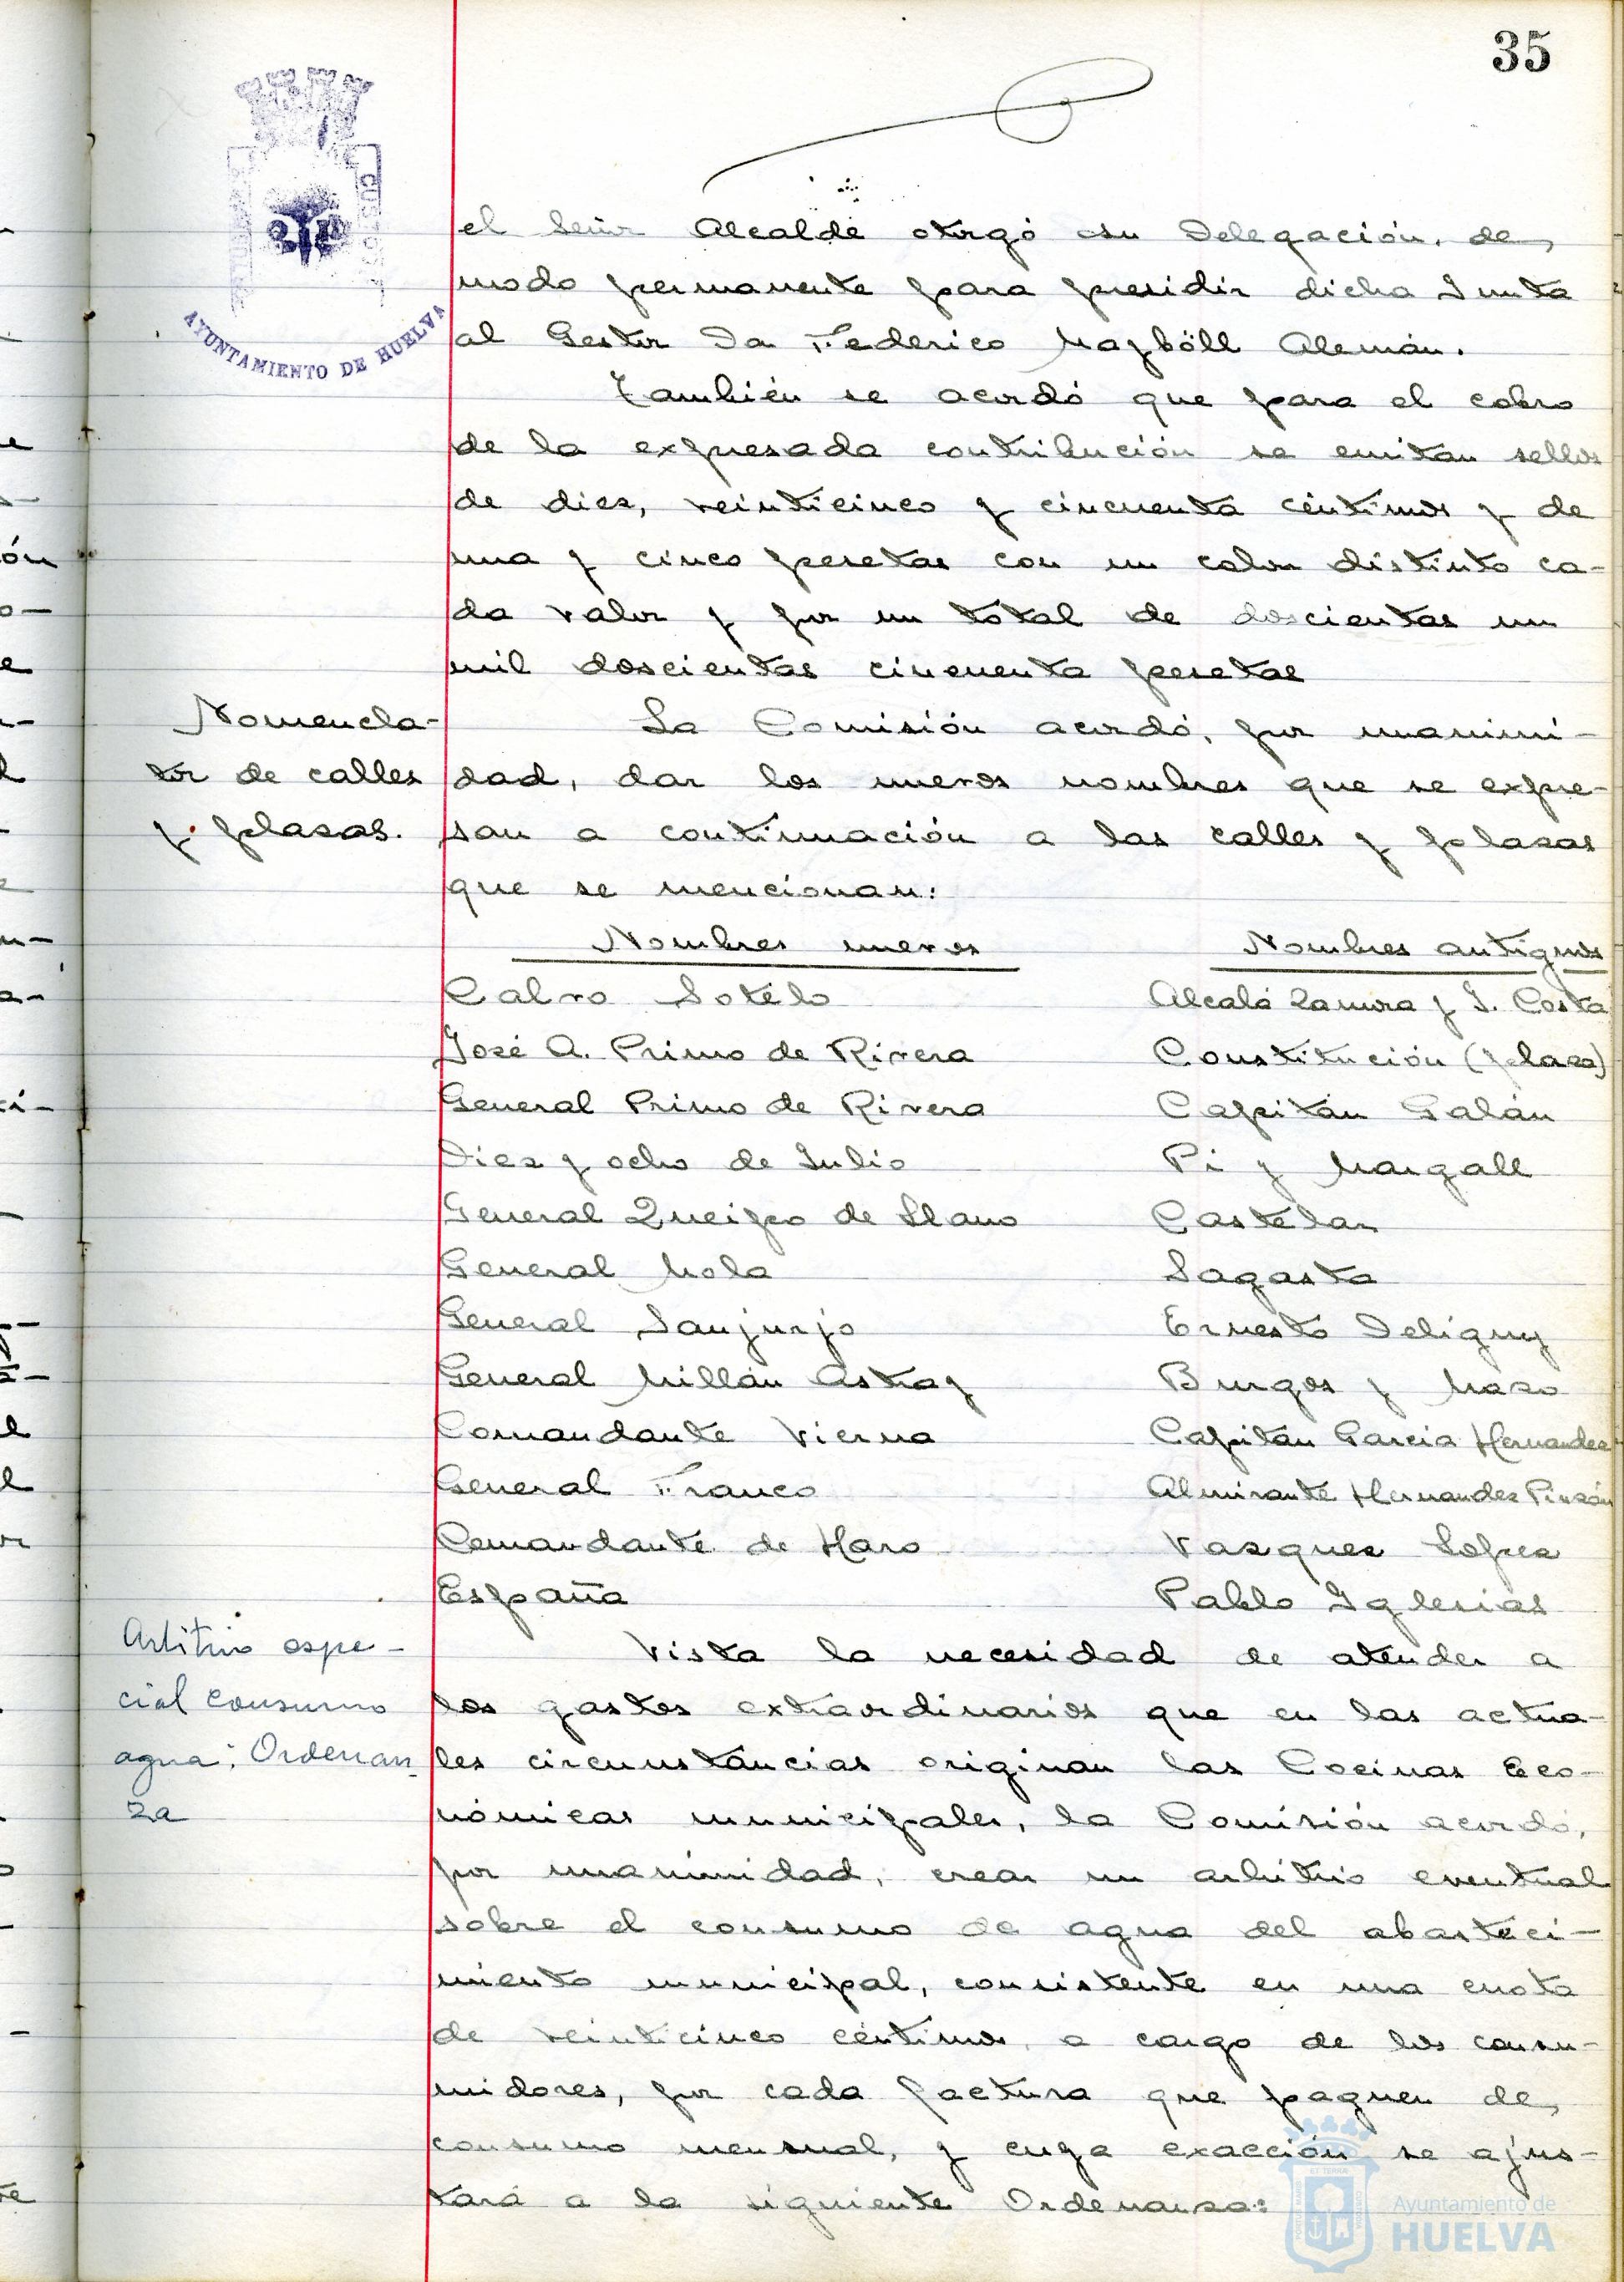 35
CUS
AYUNTAMIENTO DE HUELVA
el Señor Alcalde otorgó su Delegación, de
modo permanente para presidir dicha Junta
al Gestor Dn Federico Mayböll Alemán.
También se acordó que para el cobro
de la expresada contribución se emitan sellos
de diez, veinticinco y cincuenta céntimos y de
una y cinco pesetas con un color distinto ca-
da valor y por un total de doscientas un
mil doscientas cincuenta pesetas
Nomencla-
tor de calles
y plazas.
La Comisión acordó, por unanimi-
dad, dar los nuevos nombres que se expre-
san a continuación a las calles y plazas
que se mencionan:
Nombres nuevos Nombres antiguos
Calvo Sotelo Alcalá Zamora y J. Costa
José A. Primo de Rivera Constitución (plaza)
General Primo de Rivera Capitán Galán
Diez y ocho de Julio Pi y Margall
General Queipo de Llano Castelar
General Mola Sagasta
General Sanjurjo Ernesto Deligny
General Millán Astray Burgos y Mazo
Comandante Vierna Capitán García Hernandez
General Franco Almirante Hernandez Pinzón
Comandante de Haro Vazquez Lopez
España Pablo Iglesias
Arbitrio espe-
cial consumo
agua: Ordenan
za
Vista la necesidad de atender a
los gastos extraordinarios que en las actua-
les circunstancias originan las Cocinas Eco-
nómicas municipales, la Comisión acordó,
por unanimidad, crear un arbitrio eventual
sobre el consumo de agua del abasteci-
miento municipal, consistente en una cuota
de veinticinco céntimos, a cargo de los consu-
midores, por cada factura que paguen de
consumo mensual, y cuya exacción se ajus-
tará a la siguiente Ordenanza:
Ayuntamiento de
HUELVA